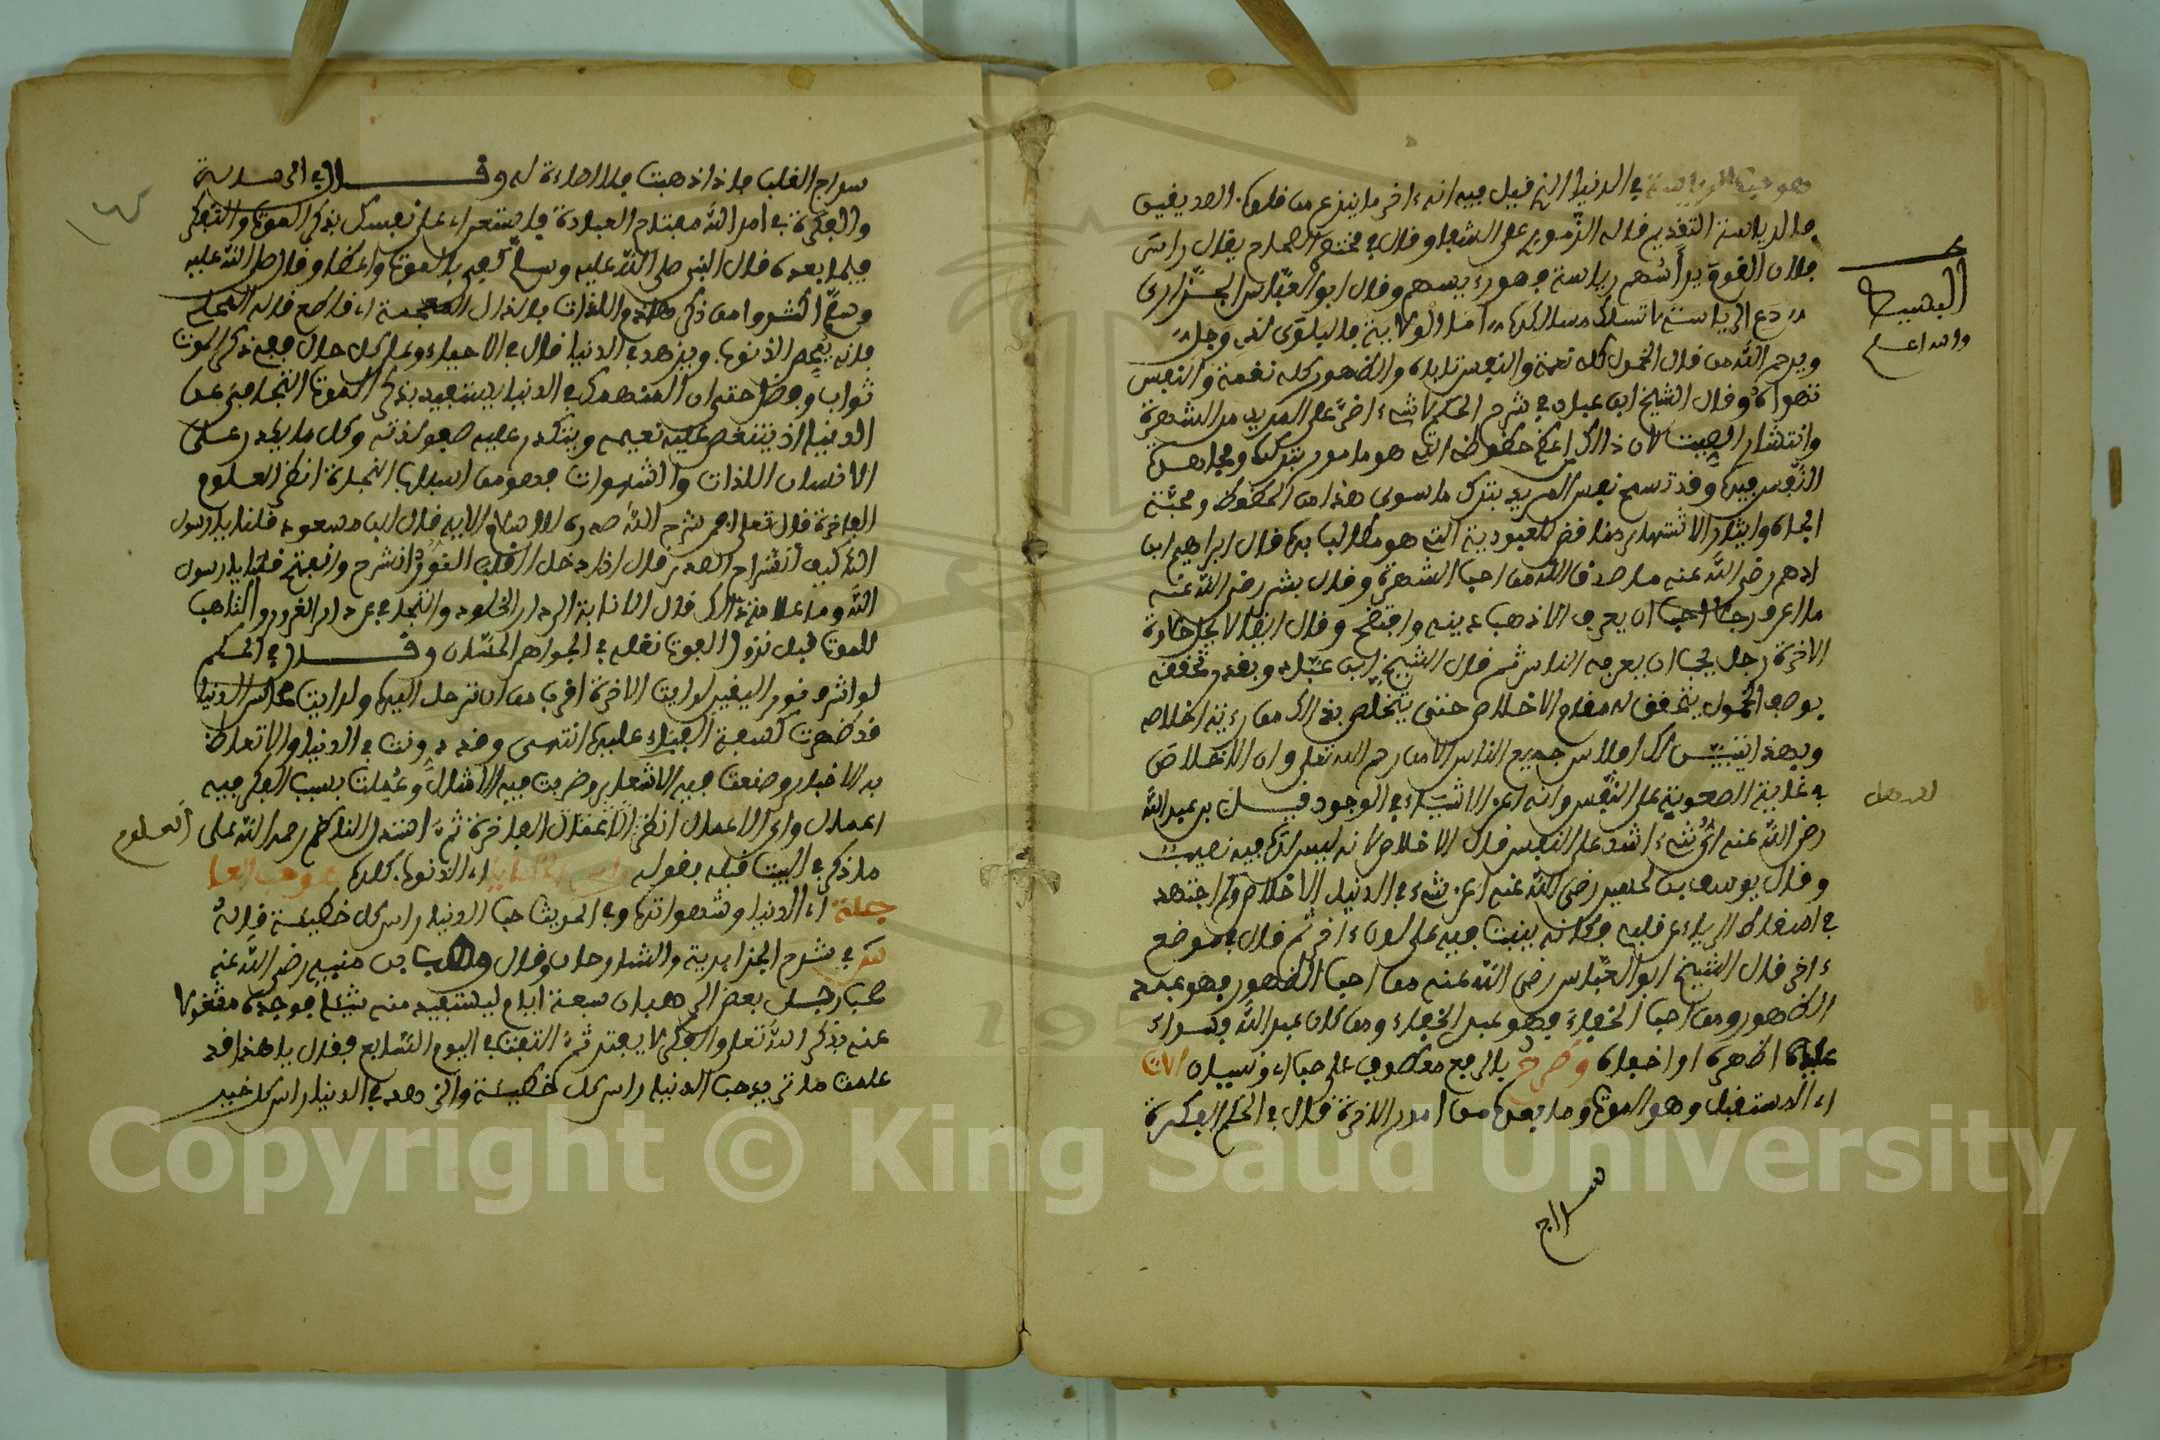 هو حب الرياسة في الدنيا الذي قيل فيه انه ءاخر ما ينزع من قلوب الصديقين
فالرياسة التقديم قاله الزموري على الشفا وقال في مختصر الصحاح يقال راس
فلان القوم يرأسهم رياسة فهو رءيسهم وقال ابو العباس الجزاري
دع الرياسة لا تسلك مسالكها
ويرحم الله من قال الخمول كله نعمة والنفس تاباه والظهور كله نقمة والنفس
تهواه وقال الشيخ ابن عباد في شرح الحكم لا شيء اضر على المريد من الشهرة
وانتشار الصيت لان ذالك اعظم حظوظه التي هو مامور بتركها ومجاهدة
النفس فيها وقد تسمح نفس المريد بترك ما سوى هذا من الحظوظ ومحبة
الجاه وايثار الاشتهار مناقض للعبودية التي هو مطالب بها قال ابراهيم ابن
ادهم رضي الله عنه ما صدق الله من احب الشهرة وقال بشر رضي الله عنه
ما اعرف رجلا احب ان يعرف الا ذهب دينه وافتضح وقال ايضا لا يجد حلاوة
الاخرة رجل يحب ان يعرفه الناس ثم قال الشيخ ابن عباد وبقدر تحققه
بوصف الخمول يتحقق له مقام الاخلاص حتى يتخلص بذالك من رءية اخلاصه
وبهذا يتبين لك افلاس جميع الناس الا من رحم الله تعلى وان الاخلاص
في غاية الصعوبة على النفس وانه اعز الاشياء في الوجود قيل لسهل بن عبد الله
رضي الله عنه اي شيء اشد على النفس قال الاخلاص لانه ليس لها فيه نصيب
وقال يوسف بن الحسين رضي الله عنه اعز شيء في الدنيا الاخلاص وكم اجتهد
في اسقاط الرياء عن قلبي فكانه ينبت فيه على لون ءاخر ثم قال في موضع
ءاخر قال الشيخ ابو العباس رضي الله عنه من احب الظهور فهو عبد
الظهور ومن احب الخفاء فهو عبد الخفاء ومن كان عبد الله فسواء
عليه اظهره او اخفاه وطرح بالرفع معطوف على حب اي ونسيان الات
اي المستقبل وهو الموت وما بعده من امور الاخرة قال في الحكم الفكرة
سراج
والله اعلم
سراج القلب فاذا ذهبت فلا اضاءة له وقال في
والفكرة في امر الله مفتاح العبادة
فيما بعده قال النبي صلى الله عليه وسلم كفى بالموت واعظا وقال صلى الله عليه
وسلم اكثروا من ذكر هاذم اللذات بالذال المعجمة اي قاطع
فانه يمحص الذنوب ويزهد في الدنيا قال في الاحياء وعلى كل حال ففي ذكر الموت
ثواب وفضل حتى ان المنهمك في الدنيا يستفيد بذكر الموت التجافي عن
الدنيا اذ يتنغص عليه نعيمه ويتكدر عليه صفو لذته وكل ما يكدر على
الانسان اللذات والشهوات فهو من اسباب النجاة انظر العلوم
الفاخرة قال تعلى افمن شرح الله صدره للاسلام الاية قال ابن مسعود قلنا يا رسول
الله كيف انشراح الصدر قال اذا دخل القلب النور انشرح وانفتح قلنا يا رسول
الله وما علامة ذالك قال الانابة الى دار الخلود والتجافي عن دار الغرور والتاهب
للموت قبل نزول الموت نقله في الجواهر الحسان وقال في الحكم
لو اشرق نور اليقين لرايت الاخرة اقرب من ان ترحل اليها ولرايت محاسن الدنيا
قد ظهرت كسفة الفناء عليها انتهى وقد دونت في الدنيا والاتعاظ
به الاخبار وصنعت فيه الاشعار وضربت فيه الامثال وعملت بسبب الفكر فيه
اعمال واي الاعمال انظر الفاخرة ثم استدل الناظم رحمه الله على
العلوم
ما ذكر في البيت قبله بقوله راس الخطايا اي الذنوب كلها هو حب العا
جلة اي الدنيا وشهواتها وفي الحديث حب الدنيا راس كل خطيئة قاله
في شرح الجزايرية والشارحان وقال وهب بن منبه رضي الله عنه
صحب رجل بعض الرهبان سبعة ايام ليستفيد منه شيئا فوجده مشغولا
عنه بذكر الله تعلى والفكر لا يفتر ثم التفت في اليوم السابع فقال يا هذا قد
علمت ما تريد حب الدنيا راس كل خطيئة والزهد في الدنيا راس كل خير
Copyright © King Saud University